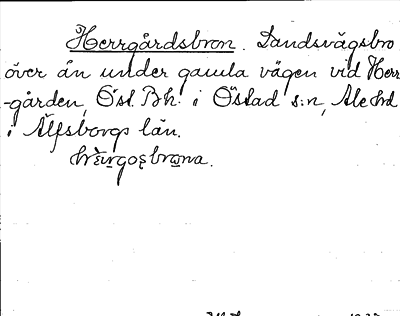 Herrgårdsbron. Landsvägsbro
över ån under gamla vägen vid Herr
-gården, Öst. Bk. i Östad s:n, Ale hd
i Älfsborgs län.